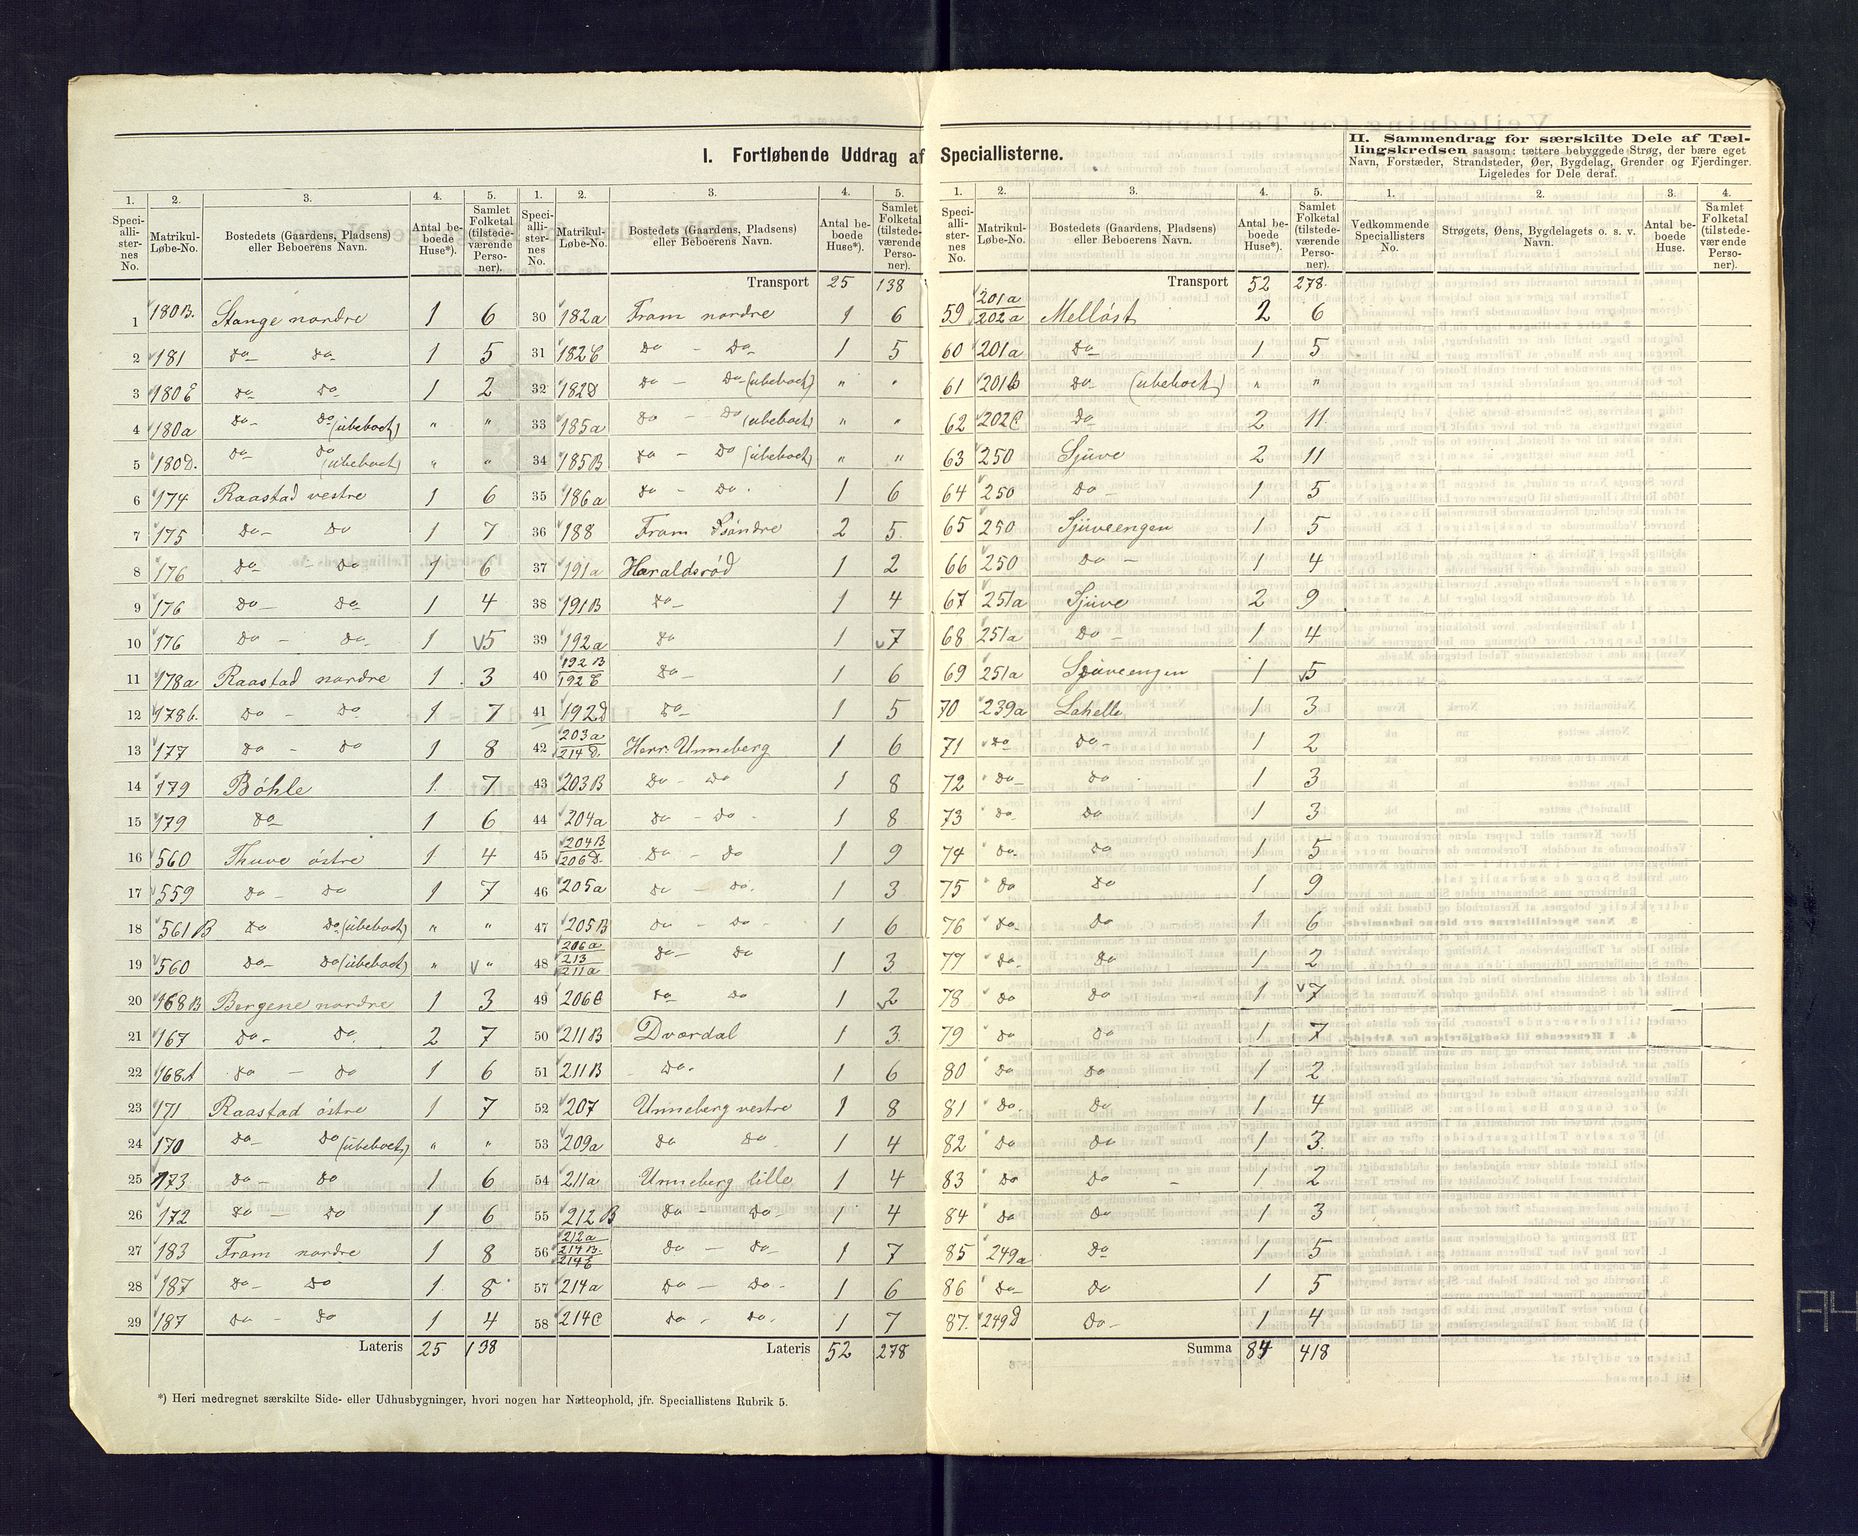 I. Fortløbende Uddrag af Speciallisterne.
II. Sammendrag for særskilte Dele af Tæl-
lingskredsen saasom: tættere bebyggede Strøg, der bære eget
Navn, Forstæder, Strandsteder, Øer, Bygdelag, Grender og Fjerdinger.
Ligeledes for Dele deraf.
1. 2. 3. 4. 5.
Speciallisternes No. Matrikul-Løbe-No. Bostedets (Gaardens, Pladsens) eller Beboerens Navn. Antal beboede Huse*). Samlet Folketal (tilstedeværende Personer).
1 180B. Stange nordre 1 6
2 181 do do 1 5
3 180C do do 1 2
4 180a do do (ubeboet) " "
5 180D. do do (ubeboet) " "
6 174 Raastad vestre 1 6
7 175 do do 1 7
8 176 do do 1 6
9 176 do do 1 4
10 176 do do 1 5
11 178a Raastad nordre 1 3
12 178b. do do 1 7
13 177 do do 1 8
14 179 Bøhle 1 7
15 179 do 1 6
16 560 Thuve østre 1 4
17 559 do do 1 7
18 561B do do (ubeboet) " "
19 560 do do (ubeboet) " "
20 168B Bergene nordre 1 3
21 167 do do 2 7
22 168A do do 1 6
23 171 Raastad østre 1 7
24 170 do do (ubeboet) " "
25 173 do do 1 6
26 172 do do 1 6
27 183 Fram nordre 1 8
28 187 do do 1 8
29 187 do do 1 4
Lateris 25 138
1. 2. 3. 4. 5.
Speciallisternes No. Matrikul-Løbe-No. Bostedets (Gaardens, Pladsens) eller Beboerens Navn. Antal beboede Huse*). Samlet Folketal (tilstedeværende Personer).
Transport 25 138
30 182a Fram nordre 1 6
31 182C do - do 1 5
32 182D do - do (ubeboet) " "
33 185a do - do (ubeboet) " "
34 185B do - do (ubeboet) " "
35 186a do - do. 1 6
36 188 Fram Søndre 2 5
37 191a Haraldsrød 1 2
38 191B do 1 4
39 192a do 1 7
40 192B 192C do 1 6
41 192D do 1 5
42 203a 214D. Herr. Unneberg 1 6
43 203B do - do 1 8
44 204a do - do. 1 8
45 204B 206D. do - do 1 9
46 205a do - do. 1 3
47 205B do - do. 1 6
48 206a 213 211a do - do 1 3
49 206C do do 1 2
50 211B Dværdal 1 3.
51 211B do. 1 6
52 207 Unneberg vestre 1 8
53 209a do do. 1 4
54 211a Unneberg lille 1 4
55 212B do - do- 1 4
56 212a 214B. 214E do - do- 1 7
57 214a do - do- 1 6
58 214C do - do. 1 7
Lateris 52 278
1. 2. 3. 4. 5.
Speciallisternes No. Matrikul-Løbe-No. Bostedets (Gaardens, Pladsens) eller Beboerens Navn. Antal beboede Huse*). Samlet Folketal (tilstedeværende Personer).
Transport 52 278.
59 201a 202a Melløst 2 6
60 201a do 1 5
61 201B do (ubeboet) " "
62 202C do 2 11
63 250 Sjuve 2 11
64 250 do- 1 5
65 250 Sjuveengen 1 5
66 250 do - 1 4
67 251a Sjuve 2 9
68 251a do- 1 4
69 251a Sjuveengen 1 5
70 239a Lahelle 1 3
71 do do- 1 2
72 do- do 1 3
73 do- do 1 3
74 do- do 1 5
75 do do 1 9
76 do- do 1 6
77 do- do 1 2
78 do do 1 7
79 do do 1 7
80 do do 1 2
81 do. do 1 4
82 do do 1 3.
83 do do - 1 2
84 do do 1 3
85 249a do 1 5
86 do- do 1 5
87. 249D do- 1 4
Summa 84 418
1. 2. 3. 4.
Vedkommende Speciallisters No. Strøgets, Øens, Bygdelagets o. s. v. Navn. Antal beboede Huse. Samlet Folketal (tilstedeværende Personer).
*) Heri medregnet særskilte Side- eller Udhusbygninger, hvori nogen har Natteophold, jfr. Speciallistens Rubrik 5.